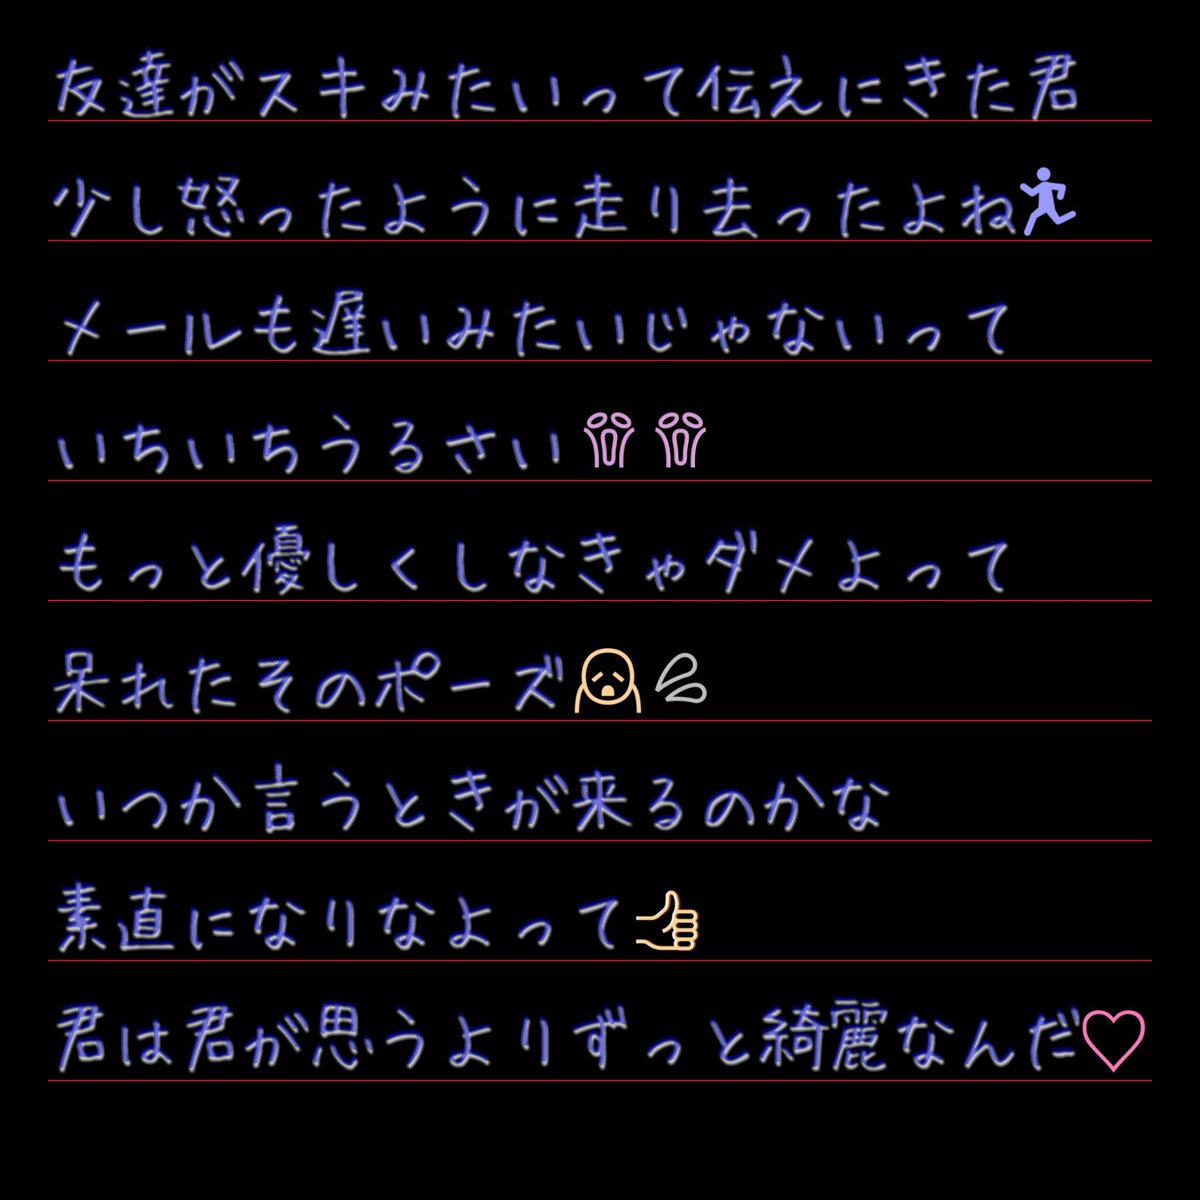 友達がスキみたいって伝えにきた君
少し怒ったように走り去ったよね
メールも遅いみたいじゃないって
いちいちうるさい
もっと優しくしなきゃダメよって
呆れたそのポーズ
いつか言うときが来るのかな
素直になりなよって
君は君が思うよりずっと綺麗なんだ